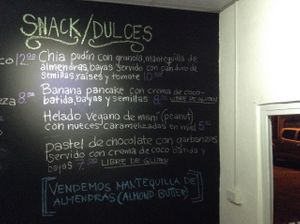 SNACK/DULCES
co 12.00
Chia pudin con granola, mantequilla de
almendras, bayas servido con pan duro de
semillas, raises y tomote 10.00
Banana pancake con crema de coco
batida, bayas y semillas 8.00 LIBRE DE GLUTEN
za 8.00
Helado Vegano de mani (peanut)
con nueces caramelizadas en nivel 5.00
pastel de chocolate con garbanzos
servido con crema de coco banda y
bayas 7.00 LIBRE DE GLUTEN
[VENDEMOS MANTEQUILLA DE
ALMENDRAS (ALMOND BUTTER)]